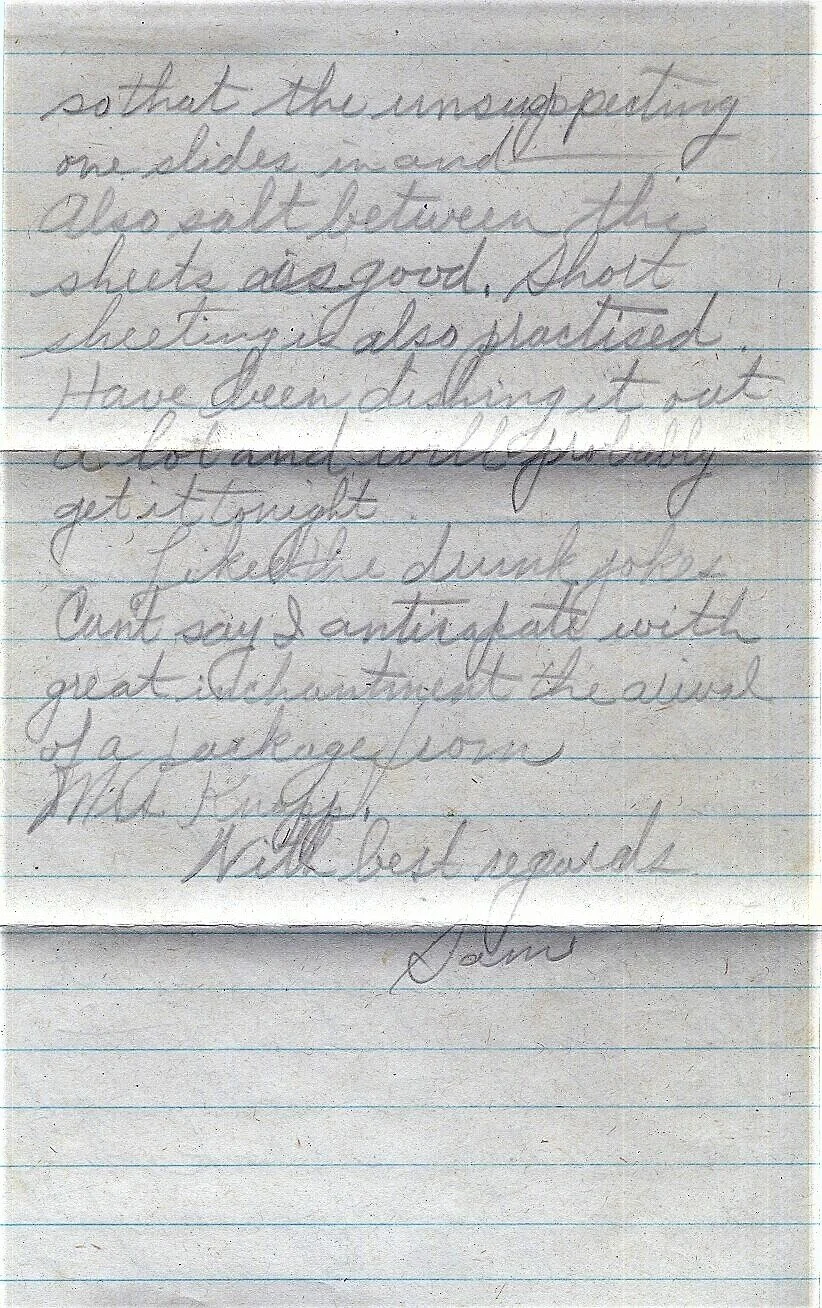 so that the unsuspecting
one slides in and —
Also salt between the
sheets is good. Short
sheeting is also practised.
Have been dishing it out
a lot and will probably
get it tonight.
Liked the drunk jokes
Cant say I anticipate with
great inchantment the arival
of a package from
Mrs. Knapp.
With best regards
Sam